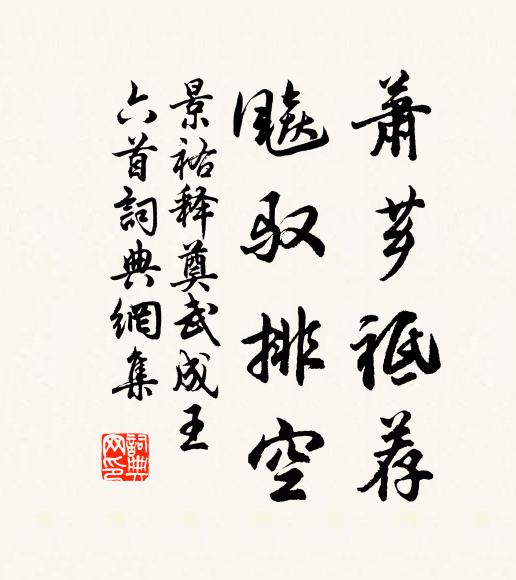 蕭芗祗荐
飚驭排空
景祐释奠武成王
六首詞典網集
詞典
网印